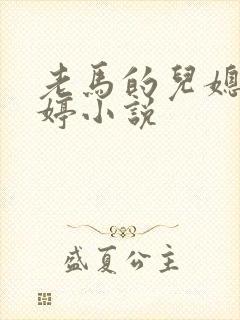 老馬的兒媳
婷小說
盛夏公主